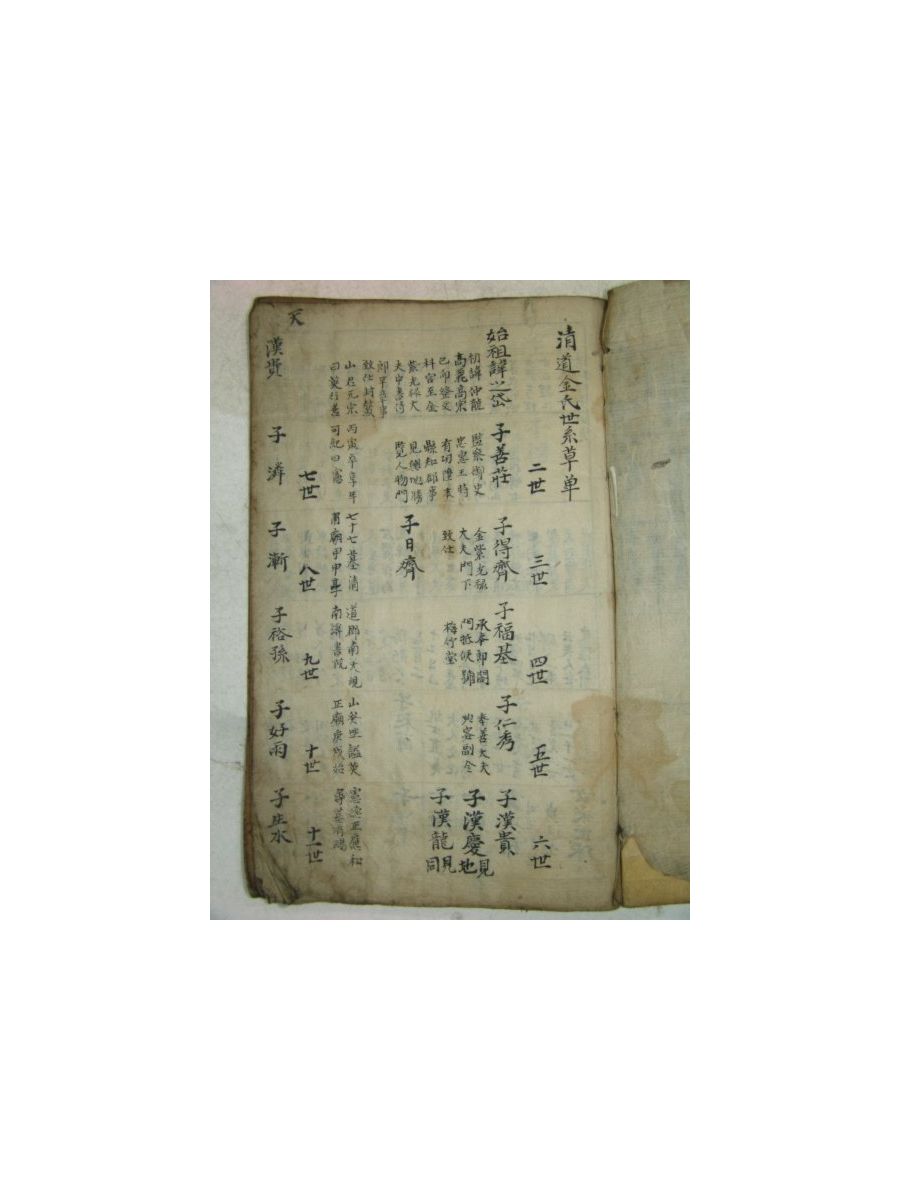 清道金氏世系草單
二世
三世
四世
五世
六世
始祖諱之岱
初諱仲龍
高麗高宗
己卯登文
科官至金
紫光祿大
夫中書侍
郎平章事
致仕封鰲
山君元宗
丙寅卒享年
七十七墓清
道郡南大峴
山癸坐諡英
憲
正應和
子善莊
監察御史
忠憲王時
縣知郡事
見輿地勝
覽人物門
子得齊
金紫光祿
大夫門下
致仕
子日齊
子福基
承奉郎閣
門祗候號
梅竹堂
子仁秀
奉善大夫
典客副令
子漢貴
子漢慶見地
子漢龍見同
南溪書院
七世
八世
九世
十世
十一世
天
漢貴
子漸
子裕孫
子好雨